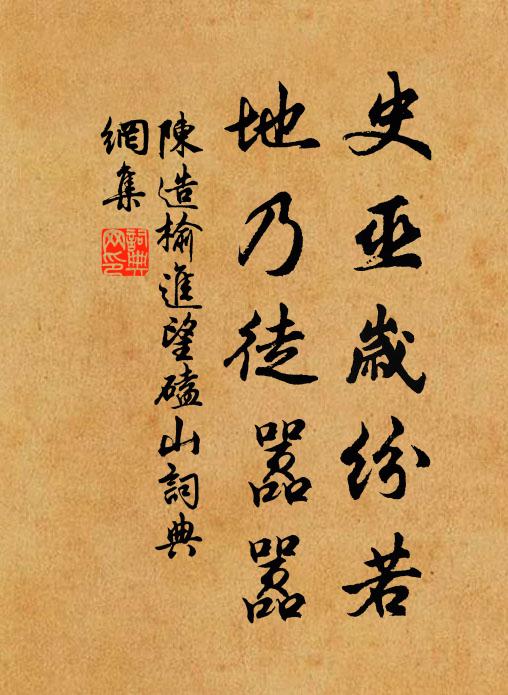 史巫歲紛若
地乃徒嚣嚣
陳造榆進望磕山詞典
網集
詞典
网印